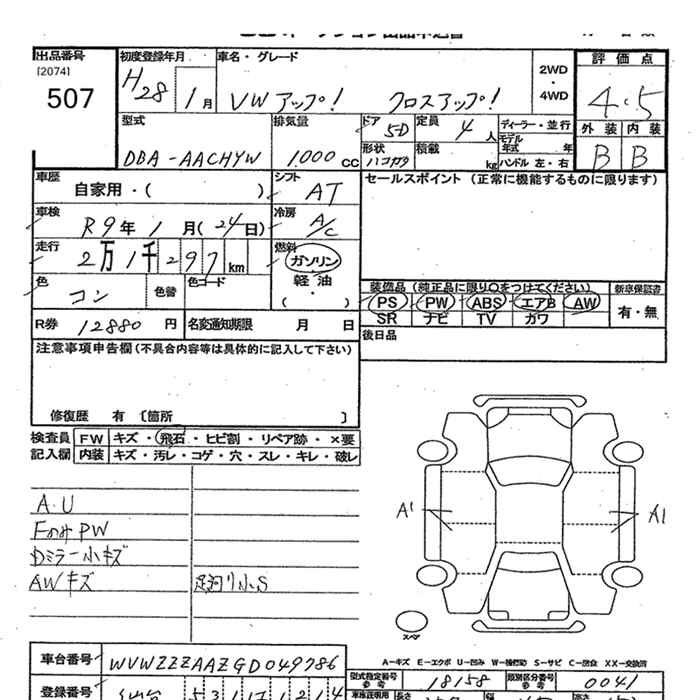 出品番号
[2074]
507
初度登録年月
H28 1月
車名・グレード
VW アップ! クロスアップ!
2WD
・
4WD
評価点
4.5
型式
DBA-AACHYW
排気量
1000cc
ドア 5D
形状 ハコガタ
定員 4人
積載 kg
ディーラー・並行
モデル年式 年
ハンドル 左・右
外装 内装
B B
車歴
自家用・( )
シフト
AT
セールスポイント (正常に機能するものに限ります)
車検
R9年 1月(24日)
冷房
A/C
走行
2万1千297km
燃料
ガソリン
軽油
・
( )
色
コン
色替
色コード
装備品 (純正品に限り○をつけてください)
新車保証書
PS PW ABS エアB AW
SR ナビ TV カワ
有・無
R券 12880円
名変通知期限 月 日
後日品
注意事項申告欄 (不具合内容等は具体的に記入して下さい)
修復歴 有 〔箇所 〕
検査員記入欄
FW キズ・飛石・ヒビ割・リペア跡・×要
内装 キズ・汚レ・コゲ・穴・スレ・キレ・破レ
A.U
FのみPW
Dミラー小キズ
AWキズ
足廻り小S
A1
A1
スペア
A-キズ E-エクボ U-凹み W-補修跡 S-サビ C-腐食 XX-交換済
車台番号
WVWZZZAAZGD049786
型式指定番号 参考
18158
類別区分番号 参考
0041
登録番号
仙台 531
車検証明用
長さ
幅
高さ